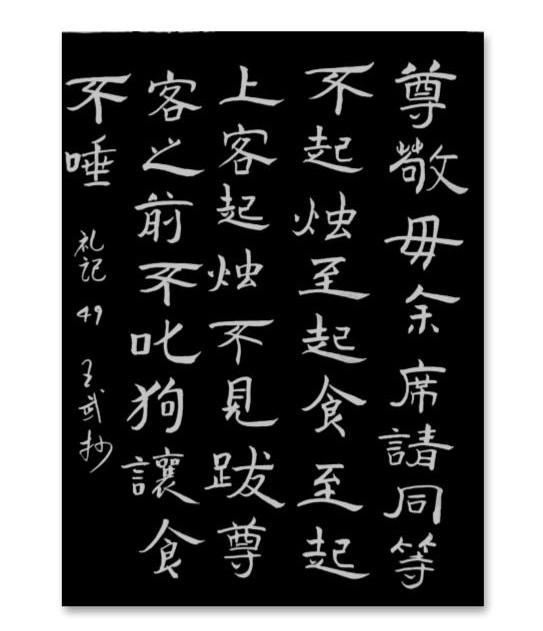 尊敬毋余席請同等
不起烛至起食至起
上客起烛不見跋尊
客之前不叱狗讓食
不唾
礼記 49 王武抄